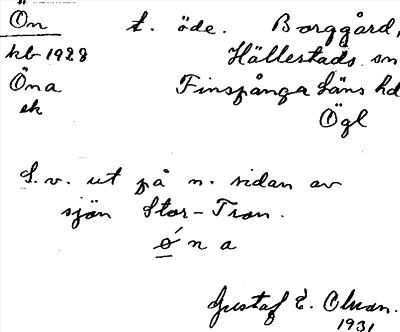 Ön t. öde. Borggård,
kb 1928 Hällestads sn
Öna Finspånga läns hd
ek Ögl
S. v. ut på n. sidan av
sjön Stor-Tron.
ǿna
Gustaf E. Olson.
1931